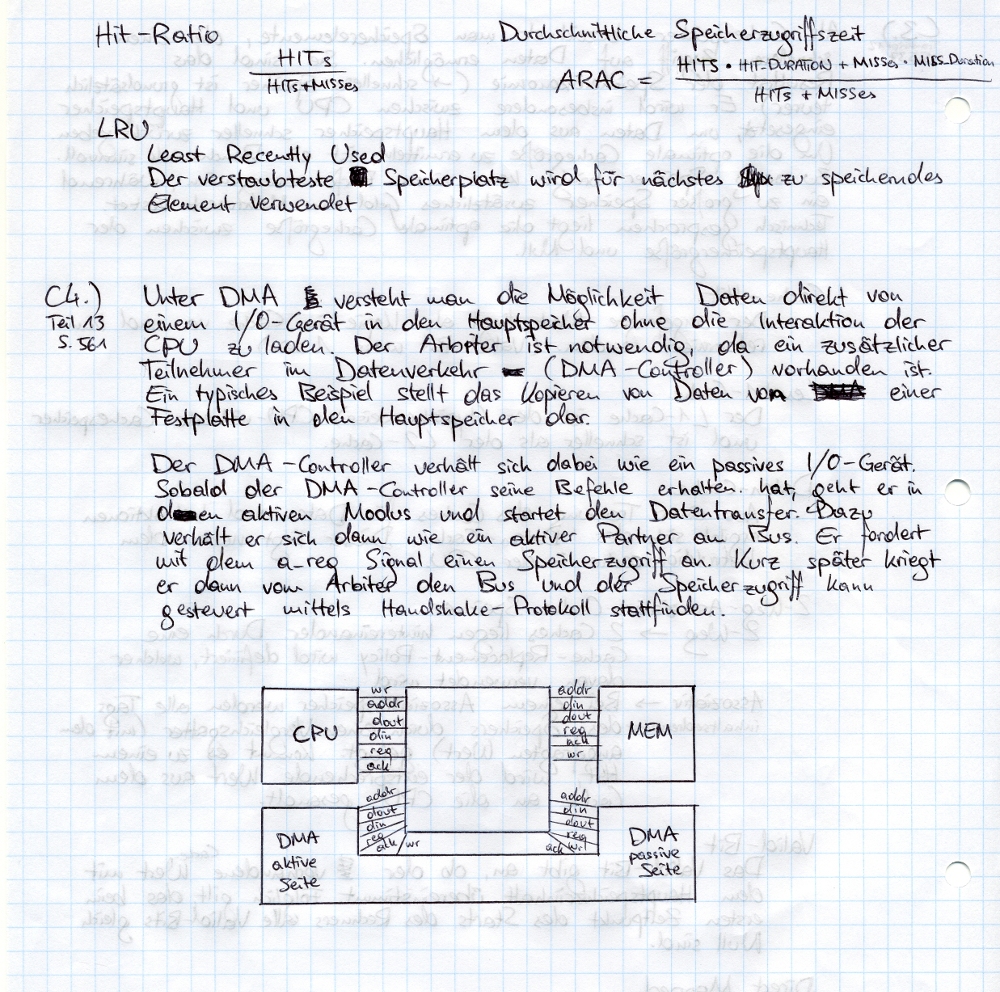 Hit-Ratio
HITs
HITs+Misses
Durchschnittliche Speicherzugriffszeit
ARAC = HITS · HIT-DURATION + Misses · MISS_Duration
HITS + Misses
LRU
Least Recently Used
Der verstaubteste Speicherplatz wird für nächstes zu speicherndes
Element verwendet
C4.)
Teil 13
S. 561
Unter DMA versteht man die Möglichkeit Daten direkt von
einem I/O-Gerät in den Hauptspeicher ohne die Interaktion der
CPU zu laden. Der Arbiter ist notwendig, da ein zusätzlicher
Teilnehmer im Datenverkehr (DMA-Controller) vorhanden ist.
Ein typisches Beispiel stellt das Kopieren von Daten von einer
Festplatte in den Hauptspeicher dar.
Der DMA-Controller verhält sich dabei wie ein passives I/O-Gerät.
Sobald der DMA-Controller seine Befehle erhalten hat, geht er in
den aktiven Modus und startet den Datentransfer. Dazu
verhält er sich dann wie ein aktiver Partner am Bus. Er fordert
mit dem a_req Signal einen Speicherzugriff an. Kurz später kriegt
er dann vom Arbiter den Bus und der Speicherzugriff kann
gesteuert mittels Handshake-Protokoll stattfinden.
CPU
wr
addr
dout
din
req
ack
addr
din
dout
req
ack
wr
MEM
DMA
aktive
Seite
addr
dout
din
req
ack
wr
addr
din
dout
req
ack
wr
DMA
passive
Seite